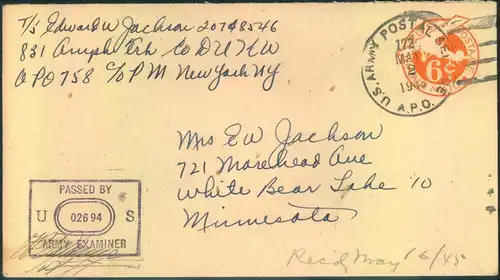 T/5 Edward W Jackson 20748546
831 Amph Trk Co DUKW
APO 758 C/O P M New York NY
U.S. ARMY POSTAL SERVICE
172
MAY
194
A.P.O.
6¢
Mrs E W Jackson
721 Morehead Ave
White Bear Lake 10
Minnesota
PASSED BY
U 02694 S
ARMY EXAMINER
Rec'd May 16/45